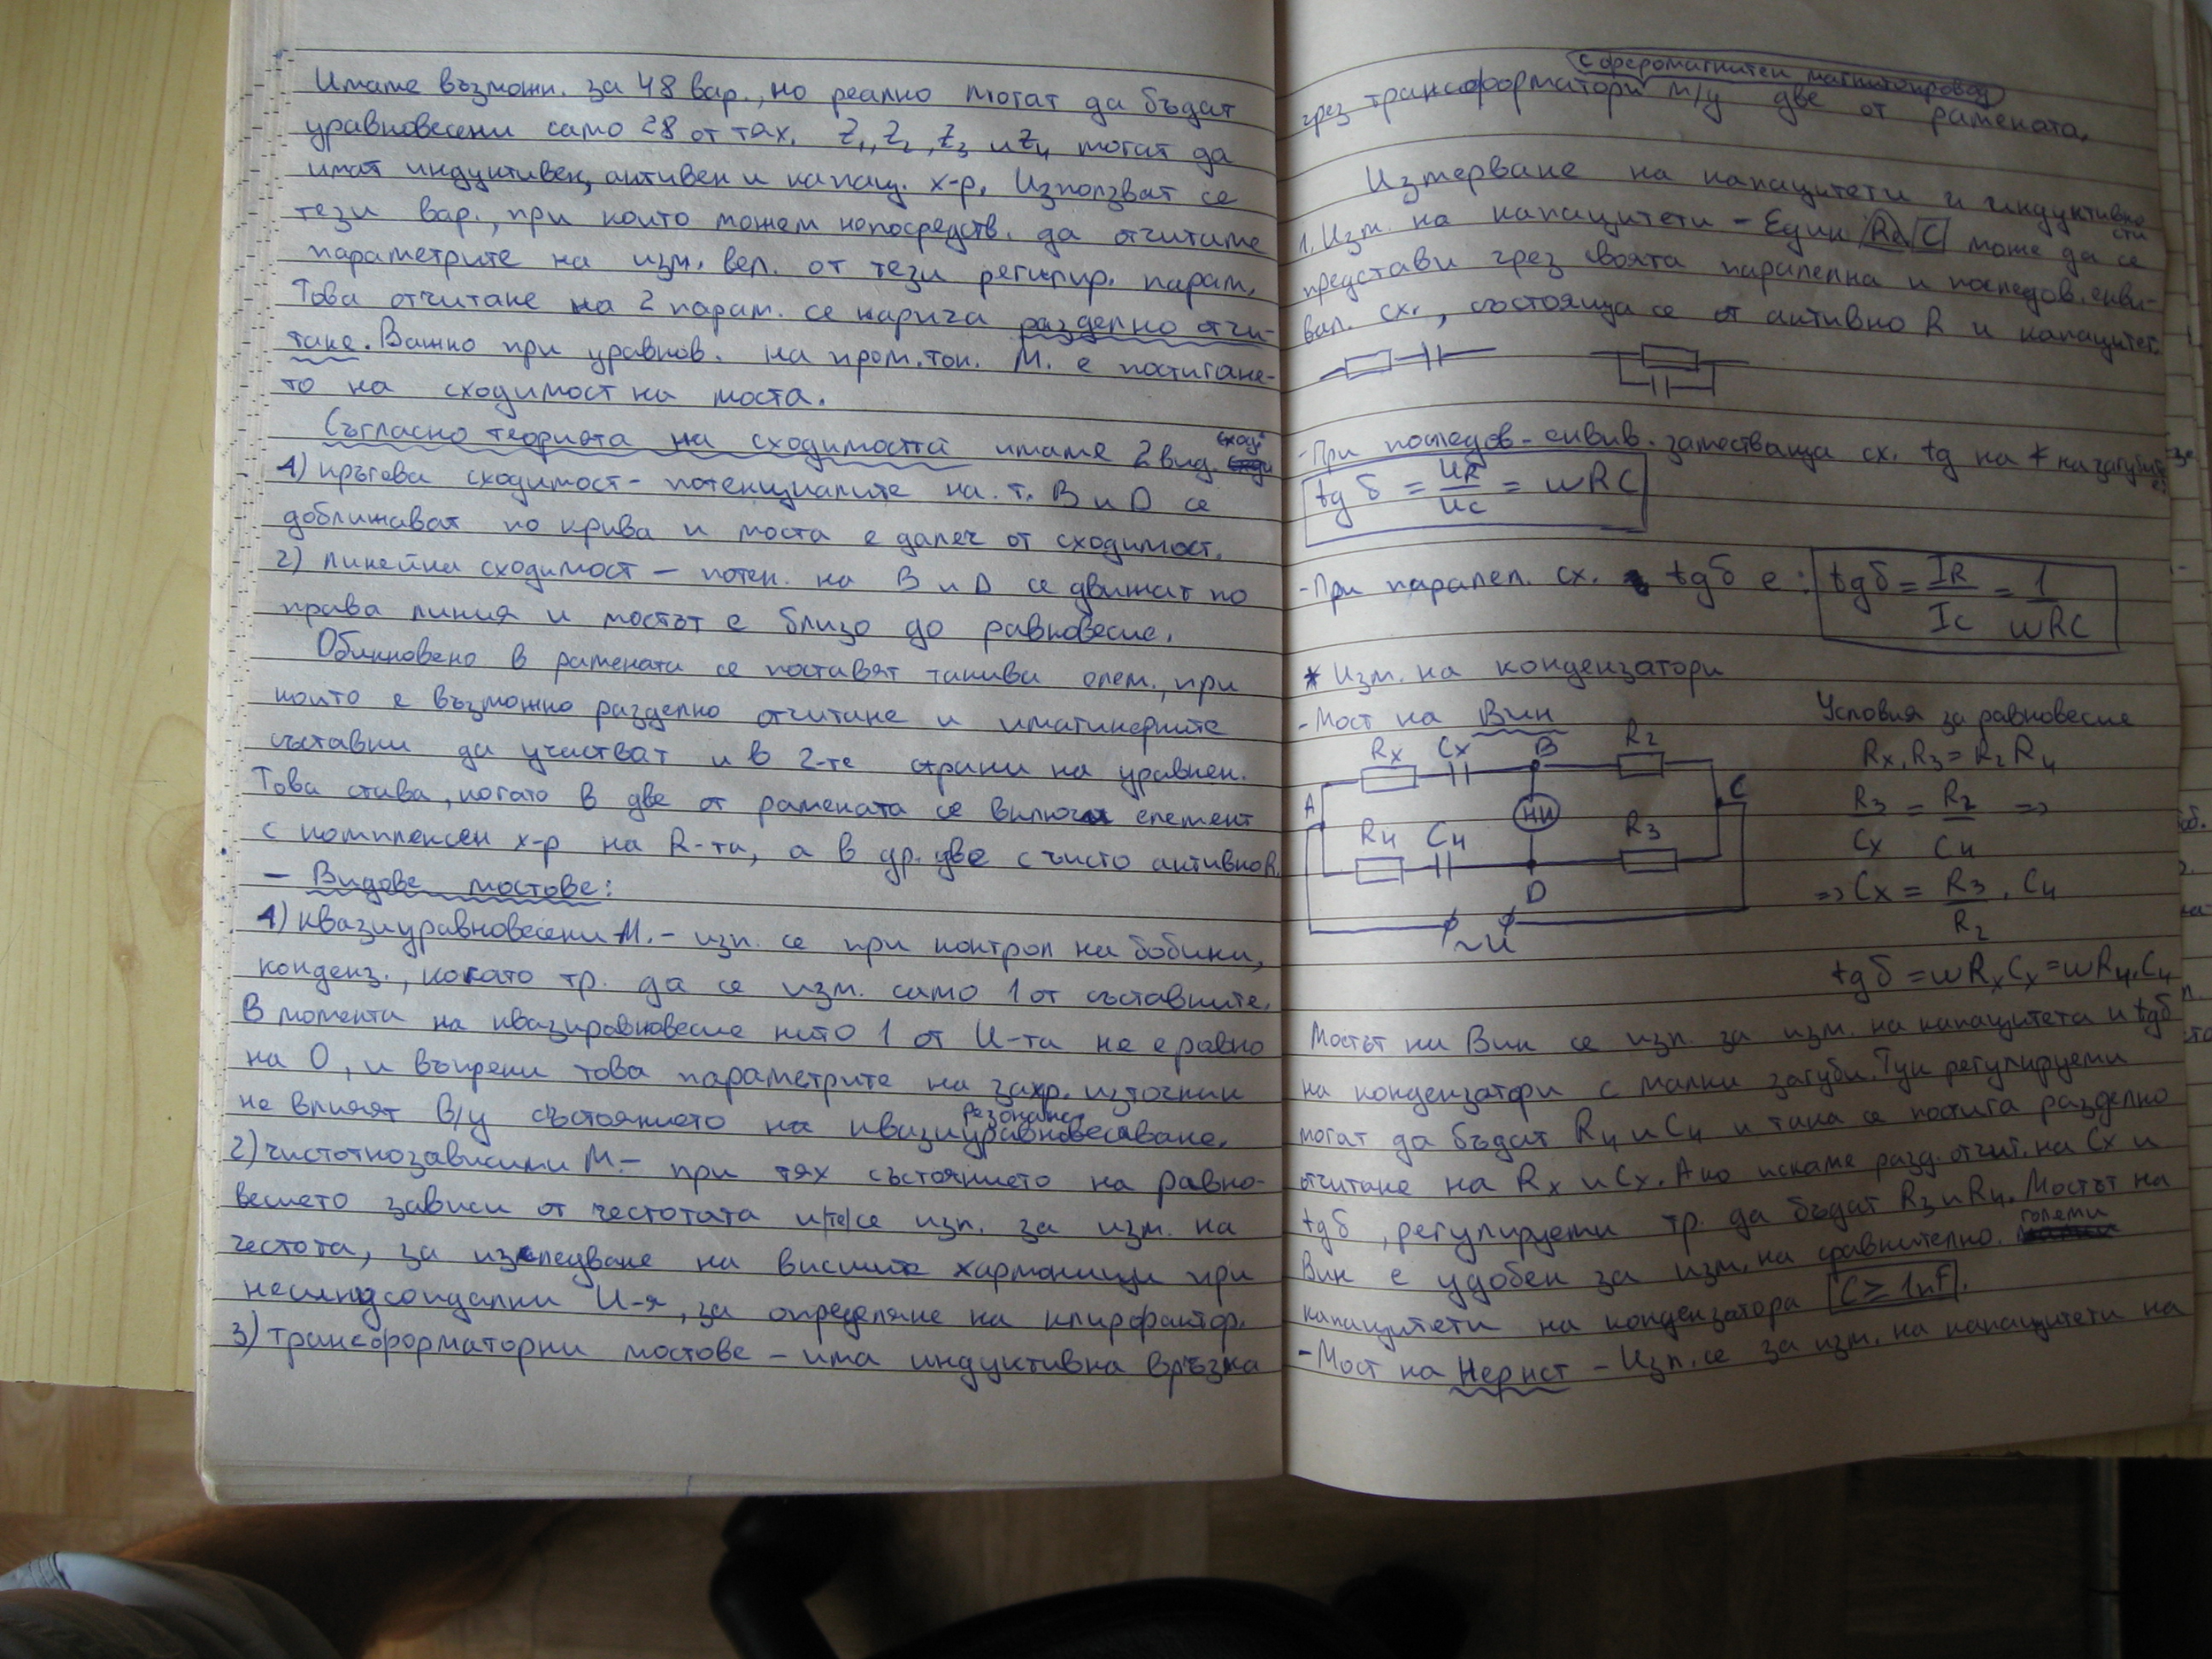 Имаме възможн. за 48 вар., но реално могат да бъдат
уравновесени само 28 от тях. Z1, Z2, Z3 и Z4 могат да
имат индуктивен, активен и капац. х-р. Използват се
тези вар., при които можем непосредств. да отчитаме
параметрите на изм. вел. от тези регулир. парам.
Това отчитане на 2 парам. се нарича разделно отчи-
тане. Важно при уравнов. на пром. ток. М. е постигане-
то на сходимост на моста.
Съгласно теорията на сходимостта имаме 2 вид. сход
1) кръгова сходимост - потенциалите на т. B и D се
доближават по крива и моста е далеч от сходимост.
2) линейна сходимост – потен. на B и D се движат по
права линия и мостът е близо до равновесие.
Обикновено в рамената се поставят такива елем., при
които е възможно разделно отчитане и имагинерните
съставки да участват и в 2-те страни на уравнен.
Това става, когато в две от рамената се включи елемент
с комплексен х-р на R-та, а в др. две с чисто активно R.
– Видове мостове:
1) Квазиуравновесени М. – изп. се при контрол на бобини,
конденз., когато тр. да се изм. само 1 от съставките.
В момента на квазиравновесие нито 1 от U-та не е равно
на 0, и въпреки това параметрите на захр. източник
не влияят в/у състоянието на квазиуравновесяване.
резонанса
2) честотнозависими М. – при тях състоянието на равно-
весието зависи от честотата и/те/се изп. за изм. на
честота, за изследване на висшите хармоници при
несинусоидални U-я, за определяне на клирфактор.
3) трансформаторни мостове – има индуктивна връзка
с феромагнитен магнитопровод
чрез трансформатори м/у две от рамената.
Измерване на капацитети и индуктивно
сти
1. Изм. на капацитети – Един Ra C може да се
представи чрез своята паралелна и последов. екви-
вал. сх., състояща се от активно R и капацитет.
- При последов. еквив. заместваща сх. tg на ∢ на загубите
е:
tgδ = UR/UC = ωRC
- При паралел. сх. tgδ е: tgδ = IR/IC = 1/ωRC
* Изм. на кондензатори
- Мост на Вин
Условия за равновесие
Rx Cx B R2
A C
R4 C4 НИ R3
D
~U
Rx.R3 = R2R4
R3/Cx = R2/C4 =>
=> Cx = R3/R2 . C4
tgδ = ωRxCx = ωR4.C4
Мостът на Вин се изп. за изм. на капацитета и tgδ
на кондензатори с малки загуби. Тук регулируеми
могат да бъдат R4 и C4 и така се постига разделно
отчитане на Rx и Cx. Ако искаме разд. отчит. на Cx и
tgδ, регулируеми тр. да бъдат R3 и R4. Мостът на
Вин е удобен за изм. на сравнително големи
капацитети на кондензатора C ≥ 1nF.
- Мост на Нернст – Изп. се за изм. на капацитети на